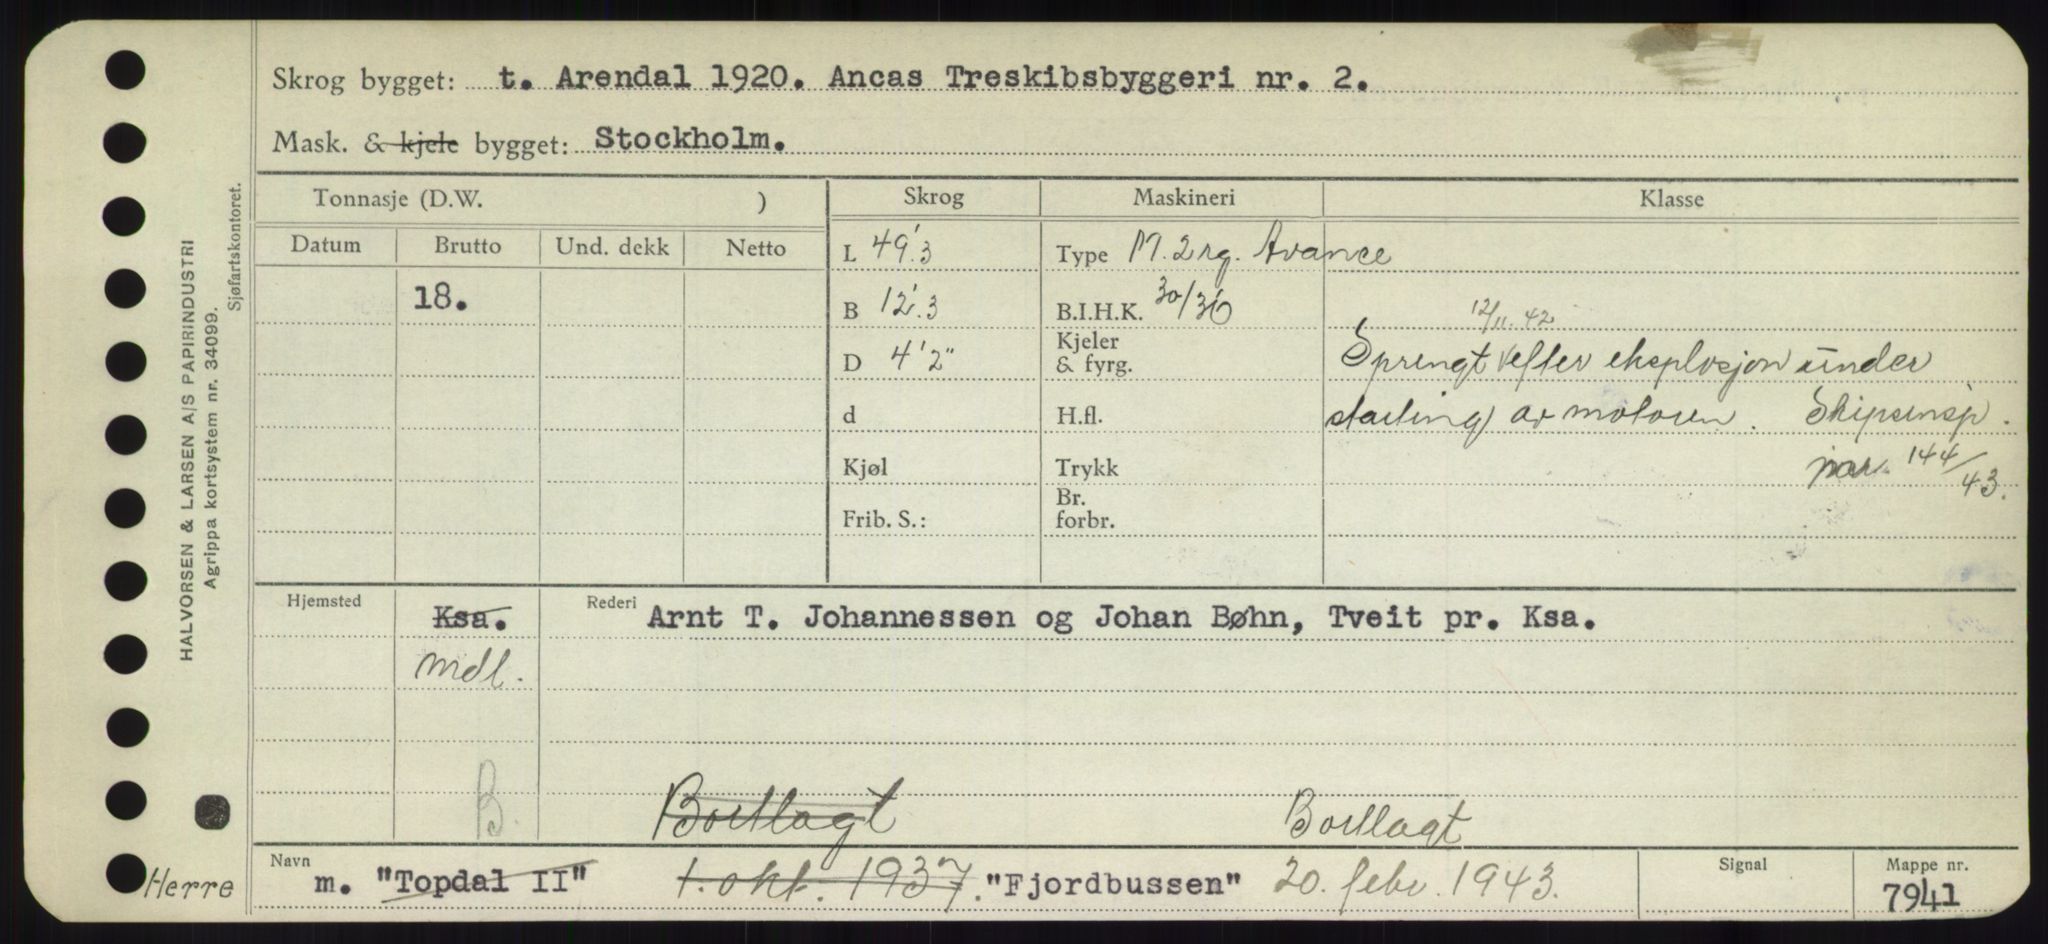 Skrog bygget: t. Arendal 1920. Ancas Treskibsbyggeri nr. 2.
Mask. & kjele bygget: Stockholm.
Tonnasje (D.W. ) Skrog Maskineri Klasse
Datum Brutto Und. dekk Netto
L 49'.3 Type M. 2 rg. Avance
18. B 12'.3 B.I.H.K. 30/36 12/11.42
D 4'2" Kjeler & fyrg. Sprengt efter eksplosjon under
d H.fl. starting av motoren. Skipsinsp.
Kjøl Trykk 144/43.
Frib. S.: Br. forbr.
Hjemsted Ksa. Rederi Arnt T. Johannessen og Johan Bøhn, Tveit pr. Ksa.
Mdl.
B. Bortlagt Bortlagt
Navn m. "Topdal II" 1. okt. 1937. "Fjordbussen" 20. febr. 1943. Signal Mappe nr. 7941
Herre
HALVORSEN & LARSEN A/S PAPIRINDUSTRI
Agrippa kortsystem nr. 34099.
Sjøfartskontoret.